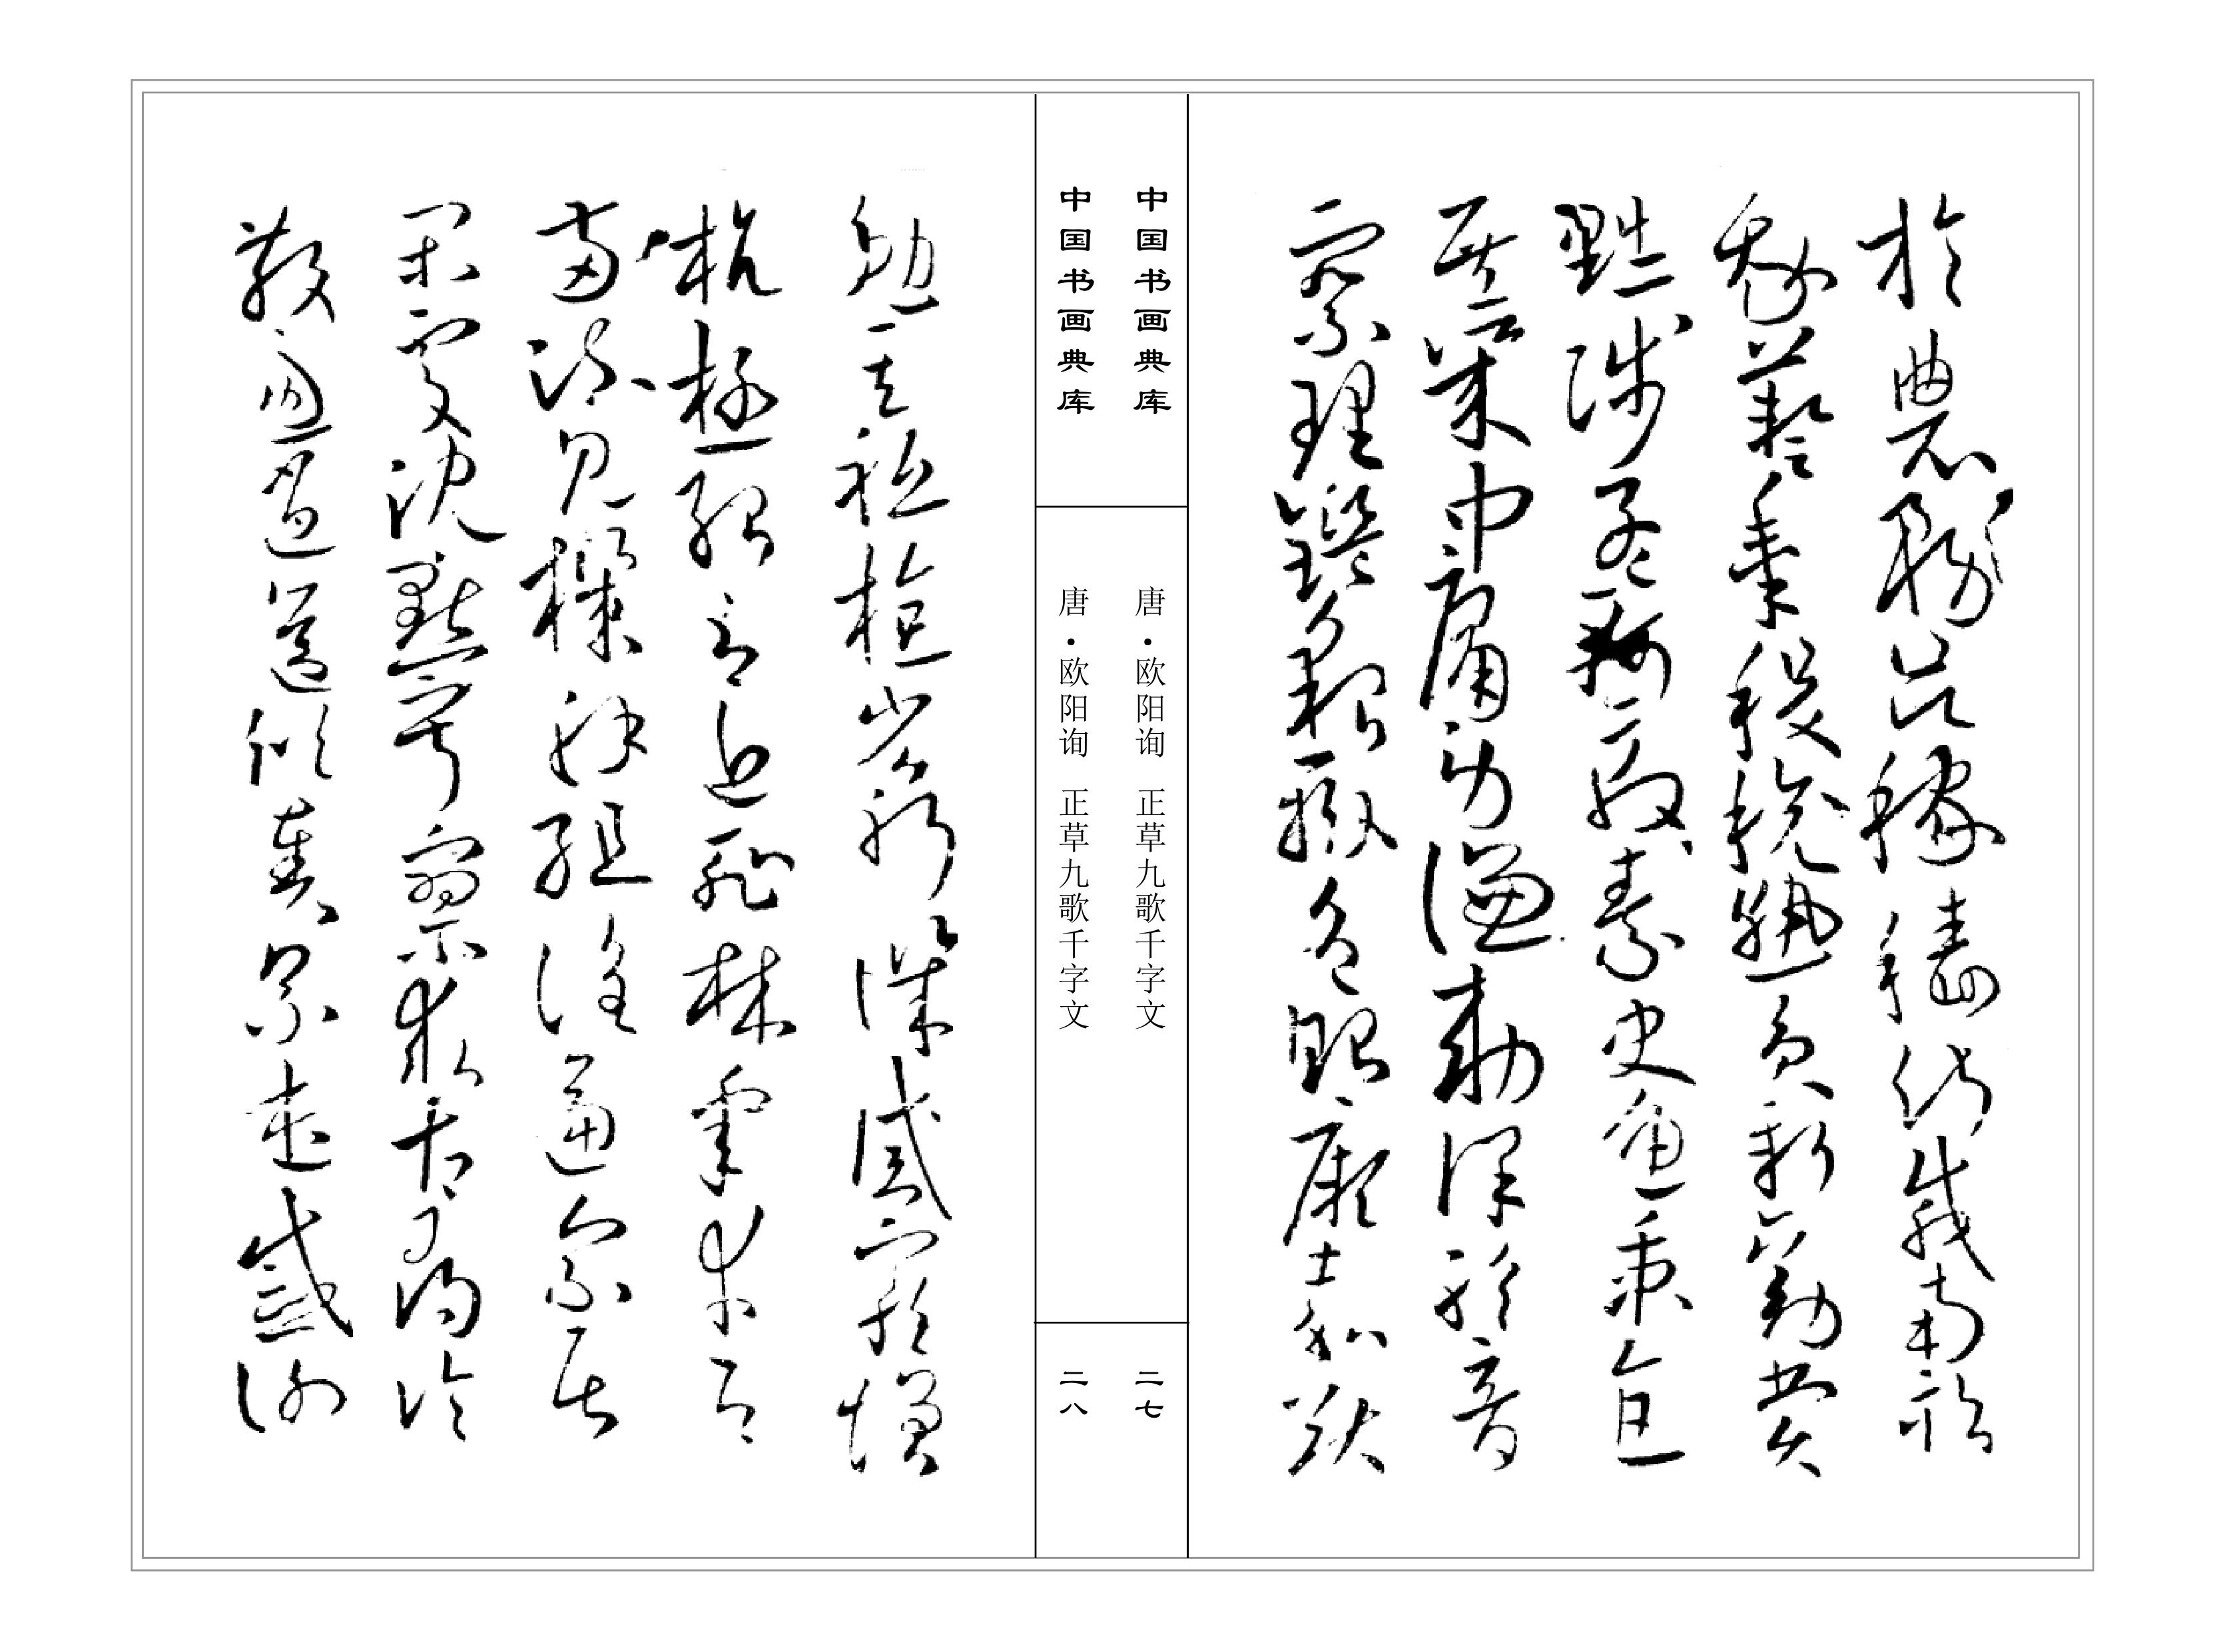 於農務茲稼穡俶載南畝
我藝黍稷稅熟貢新勸賞
黜陟孟軻敦素史魚秉直
庶幾中庸勞謙勅謹聆音
察理鑒貌辨色貽厥嘉猷
中国书画典库
唐·欧阳询 正草九歌千字文
二七
中国书画典库
唐·欧阳询 正草九歌千字文
二八
勉其祗植省躬譏誡寵增
抗極殆辱近恥林皋幸即
兩疏見機解組誰逼索居
閑處沈默寂寥求古尋論
散慮逍遙欣奏累遣慼謝